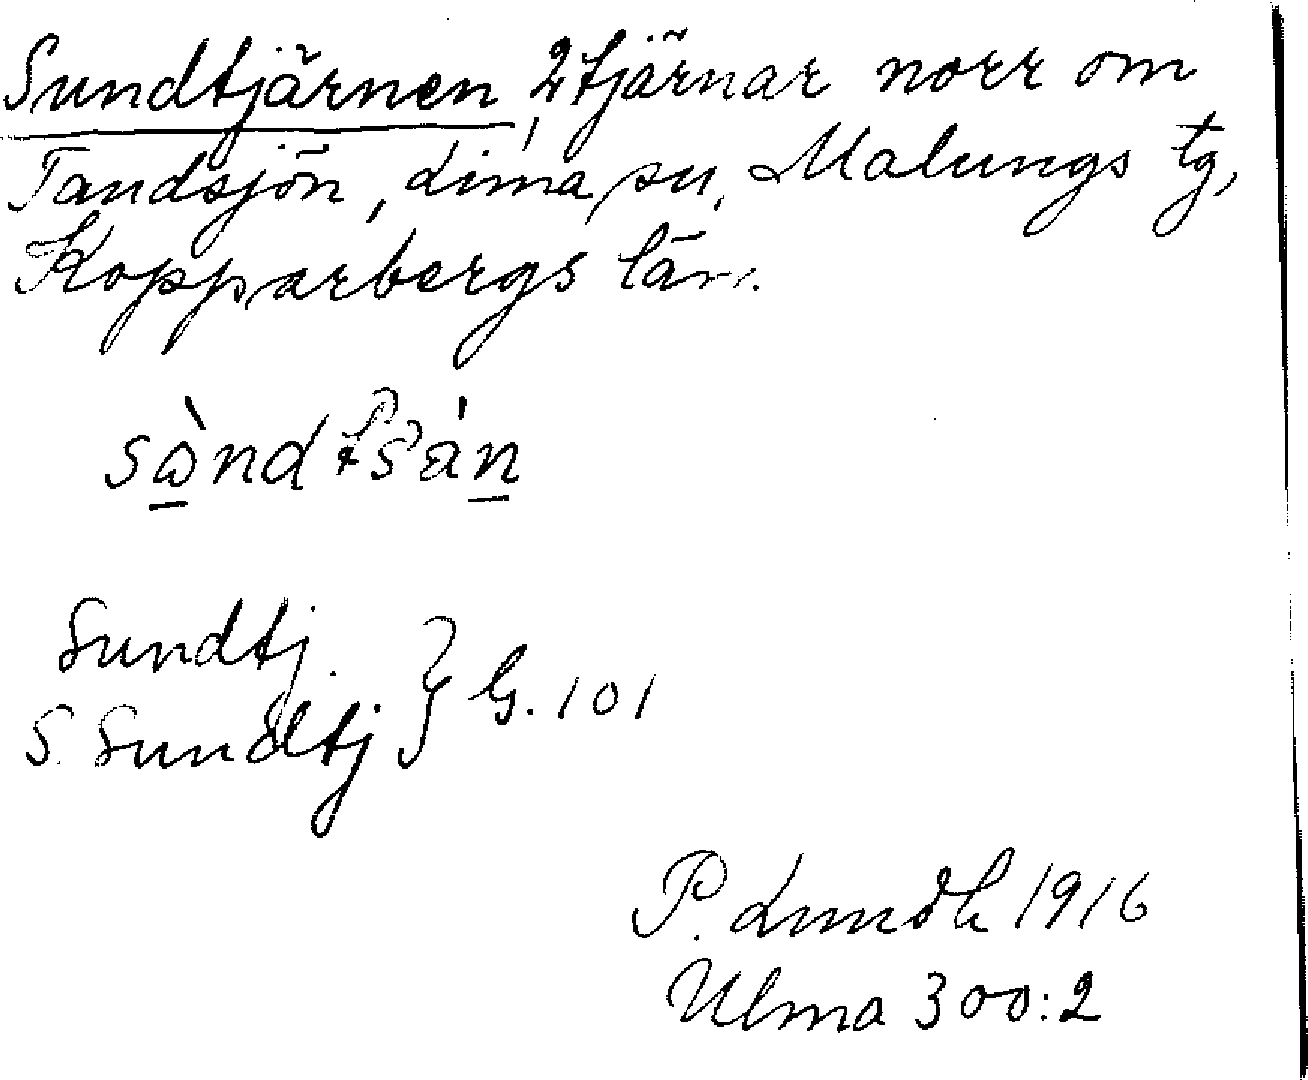 Sundtjärnen, 2 tjärnar norr om
Tandsjön, Lima sn, Malungs tg,
Kopparbergs län.
Sundtj.
S. Sundtj } G. 101
P. Lundh 1916
Ulma 300:2